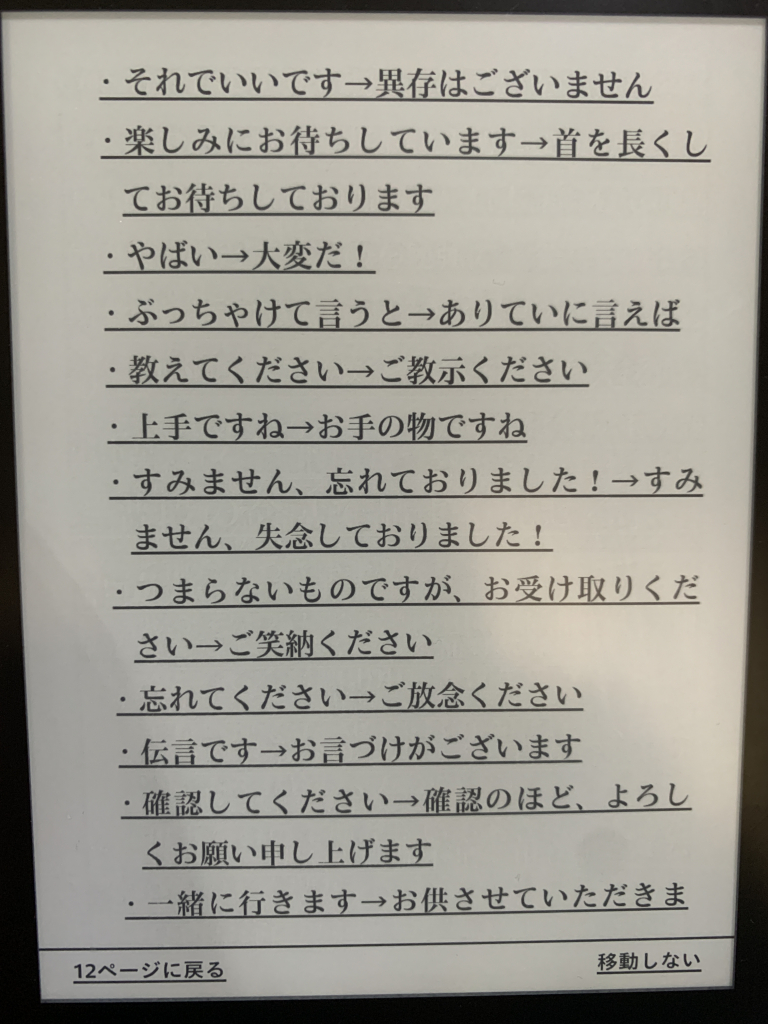 ・それでいいです→異存はございません
・楽しみにお待ちしています→首を長くし
てお待ちしております
・やばい→大変だ！
・ぶっちゃけて言うと→ありていに言えば
・教えてください→ご教示ください
・上手ですね→お手の物ですね
・すみません、忘れておりました！→すみ
ません、失念しておりました！
・つまらないものですが、お受け取りくだ
さい→ご笑納ください
・忘れてください→ご放念ください
・伝言です→お言づけがございます
・確認してください→確認のほど、よろし
くお願い申し上げます
・一緒に行きます→お供させていただきま
12ページに戻る
移動しない